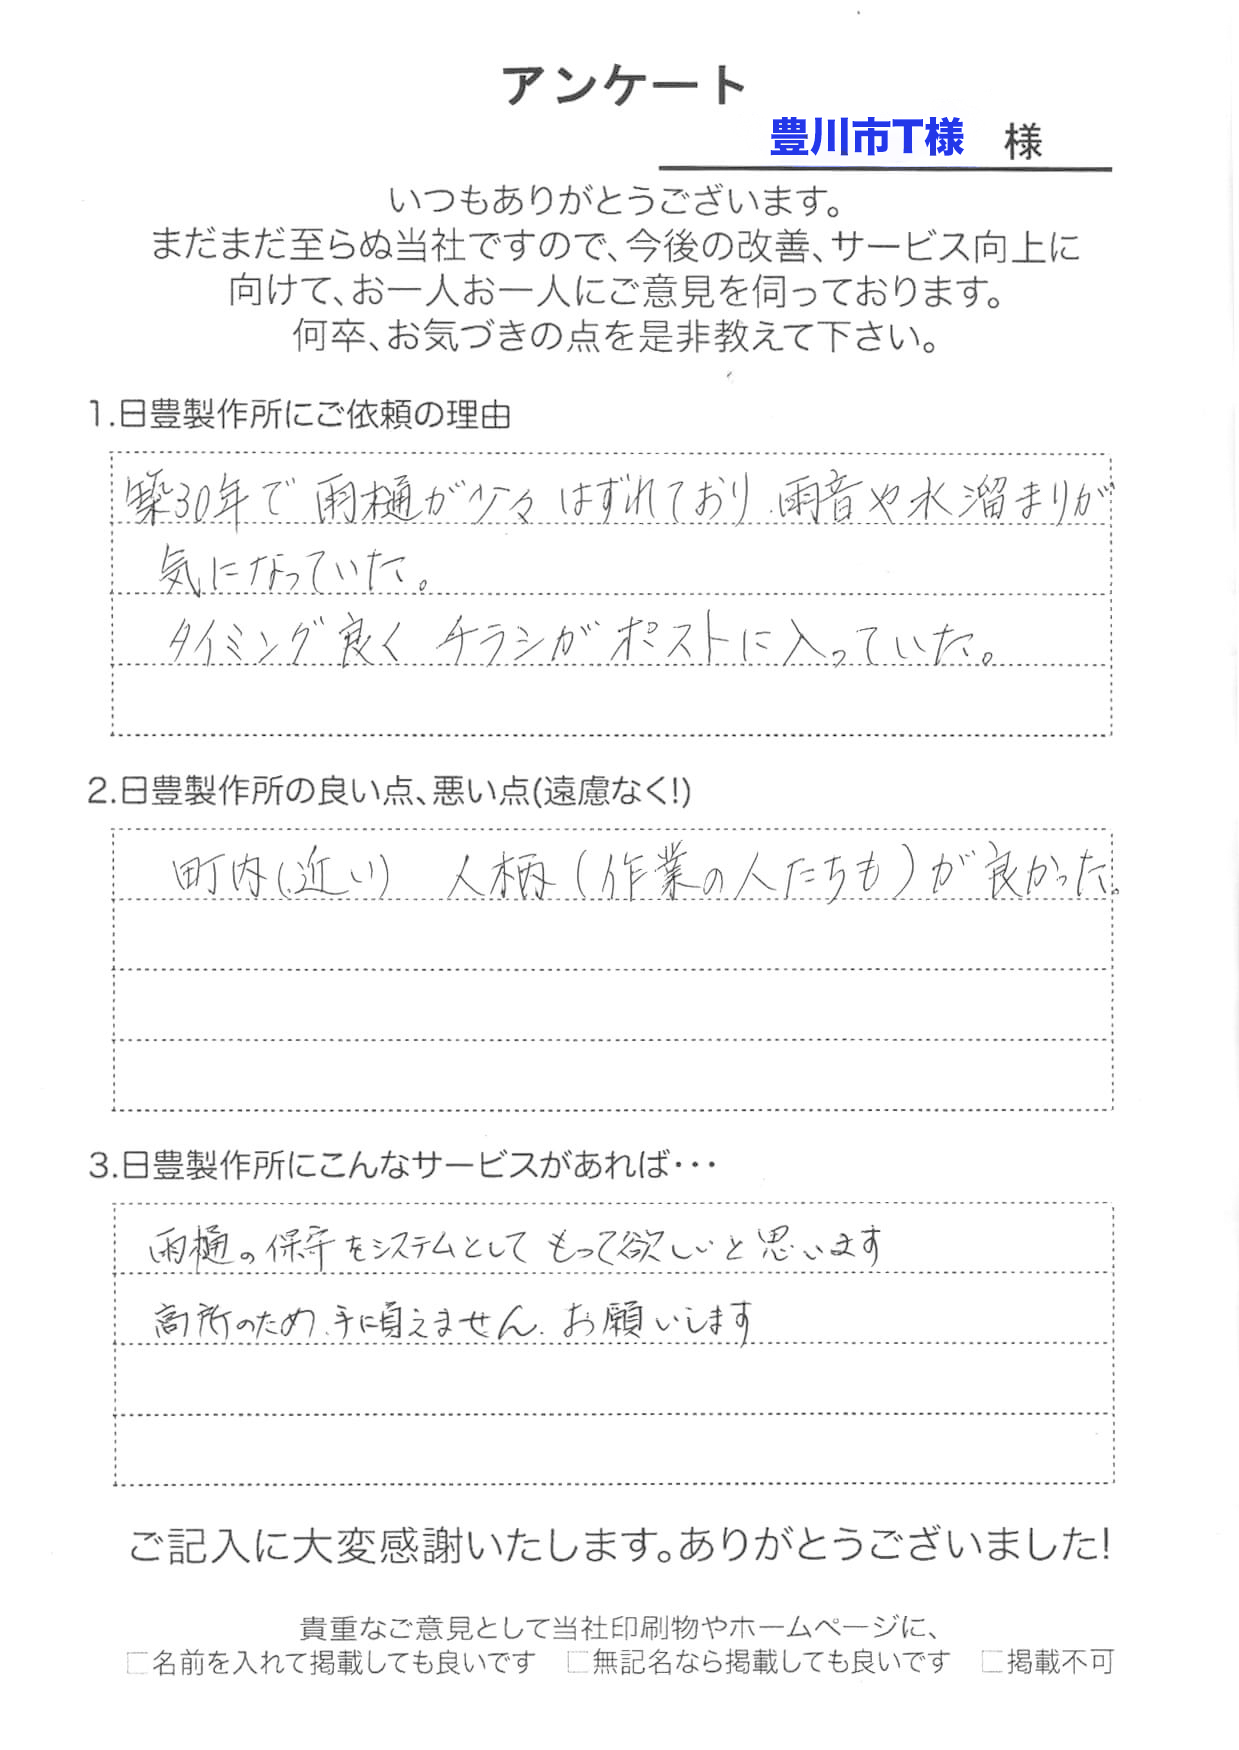 アンケート
豊川市T様 様
いつもありがとうございます。
まだまだ至らぬ当社ですので、今後の改善、サービス向上に
向けて、お一人お一人にご意見を伺っております。
何卒、お気づきの点を是非教えて下さい。
1.日豊製作所にご依頼の理由
築30年で雨樋が少々はずれており、雨音や水溜まりが
気になっていた。
タイミング良くチラシがポストに入っていた。
2.日豊製作所の良い点、悪い点(遠慮なく!)
町内(近い) 人柄(作業の人たちも)が良かった。
3.日豊製作所にこんなサービスがあれば･･･
雨樋の保守をシステムとしてもって欲しいと思います
高所のため、手に負えません。お願いします
ご記入に大変感謝いたします。ありがとうございました!
貴重なご意見として当社印刷物やホームページに、
□名前を入れて掲載しても良いです □無記名なら掲載しても良いです □掲載不可